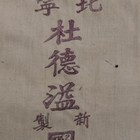 北寧
杜德溢
新製